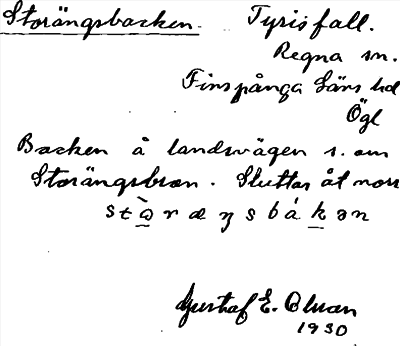 Storängsbacken. Tyrisfall.
Regna sn.
Finspånga läns hd
Ögl
Backen å landsvägen s. om
Storängsbron. Sluttar åt norr
Gustaf E. Olsson
1930